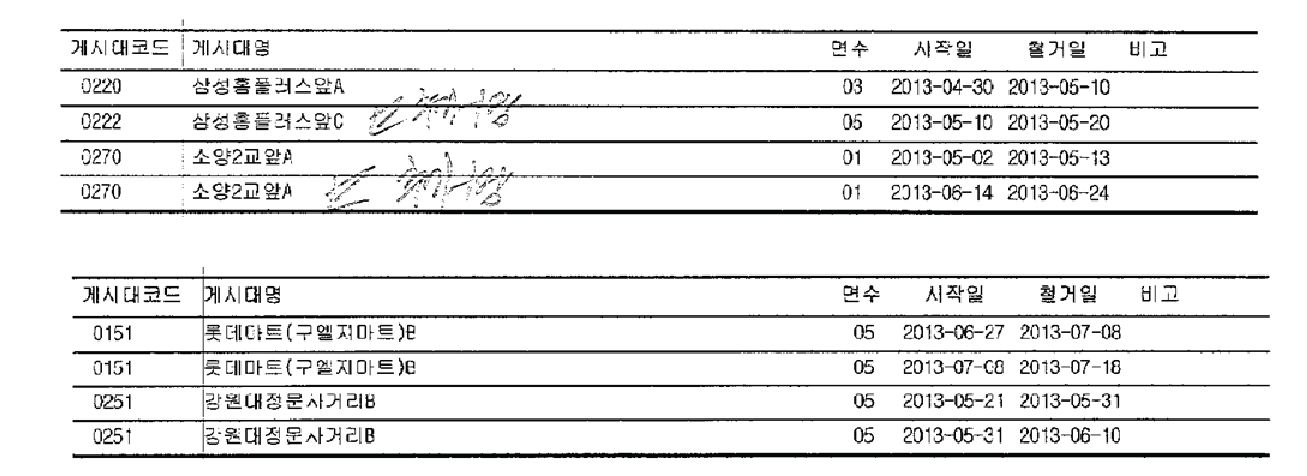 게시대코드 게시대명 면수 시작일 철거일 비고
0220 삼성홈플러스앞A 03 2013-04-30 2013-05-10
0222 삼성홈플러스앞C 05 2013-05-10 2013-05-20
0270 소양2교앞A 01 2013-05-02 2013-05-13
0270 소양2교앞A 01 2013-06-14 2013-06-24
게시대코드 게시대명 면수 시작일 철거일 비고
0151 롯데마트(구엘지마트)B 05 2013-06-27 2013-07-08
0151 롯데마트(구엘지마트)B 05 2013-07-08 2013-07-18
0251 강원대정문사거리B 05 2013-05-21 2013-05-31
0251 강원대정문사거리B 05 2013-05-31 2013-06-10